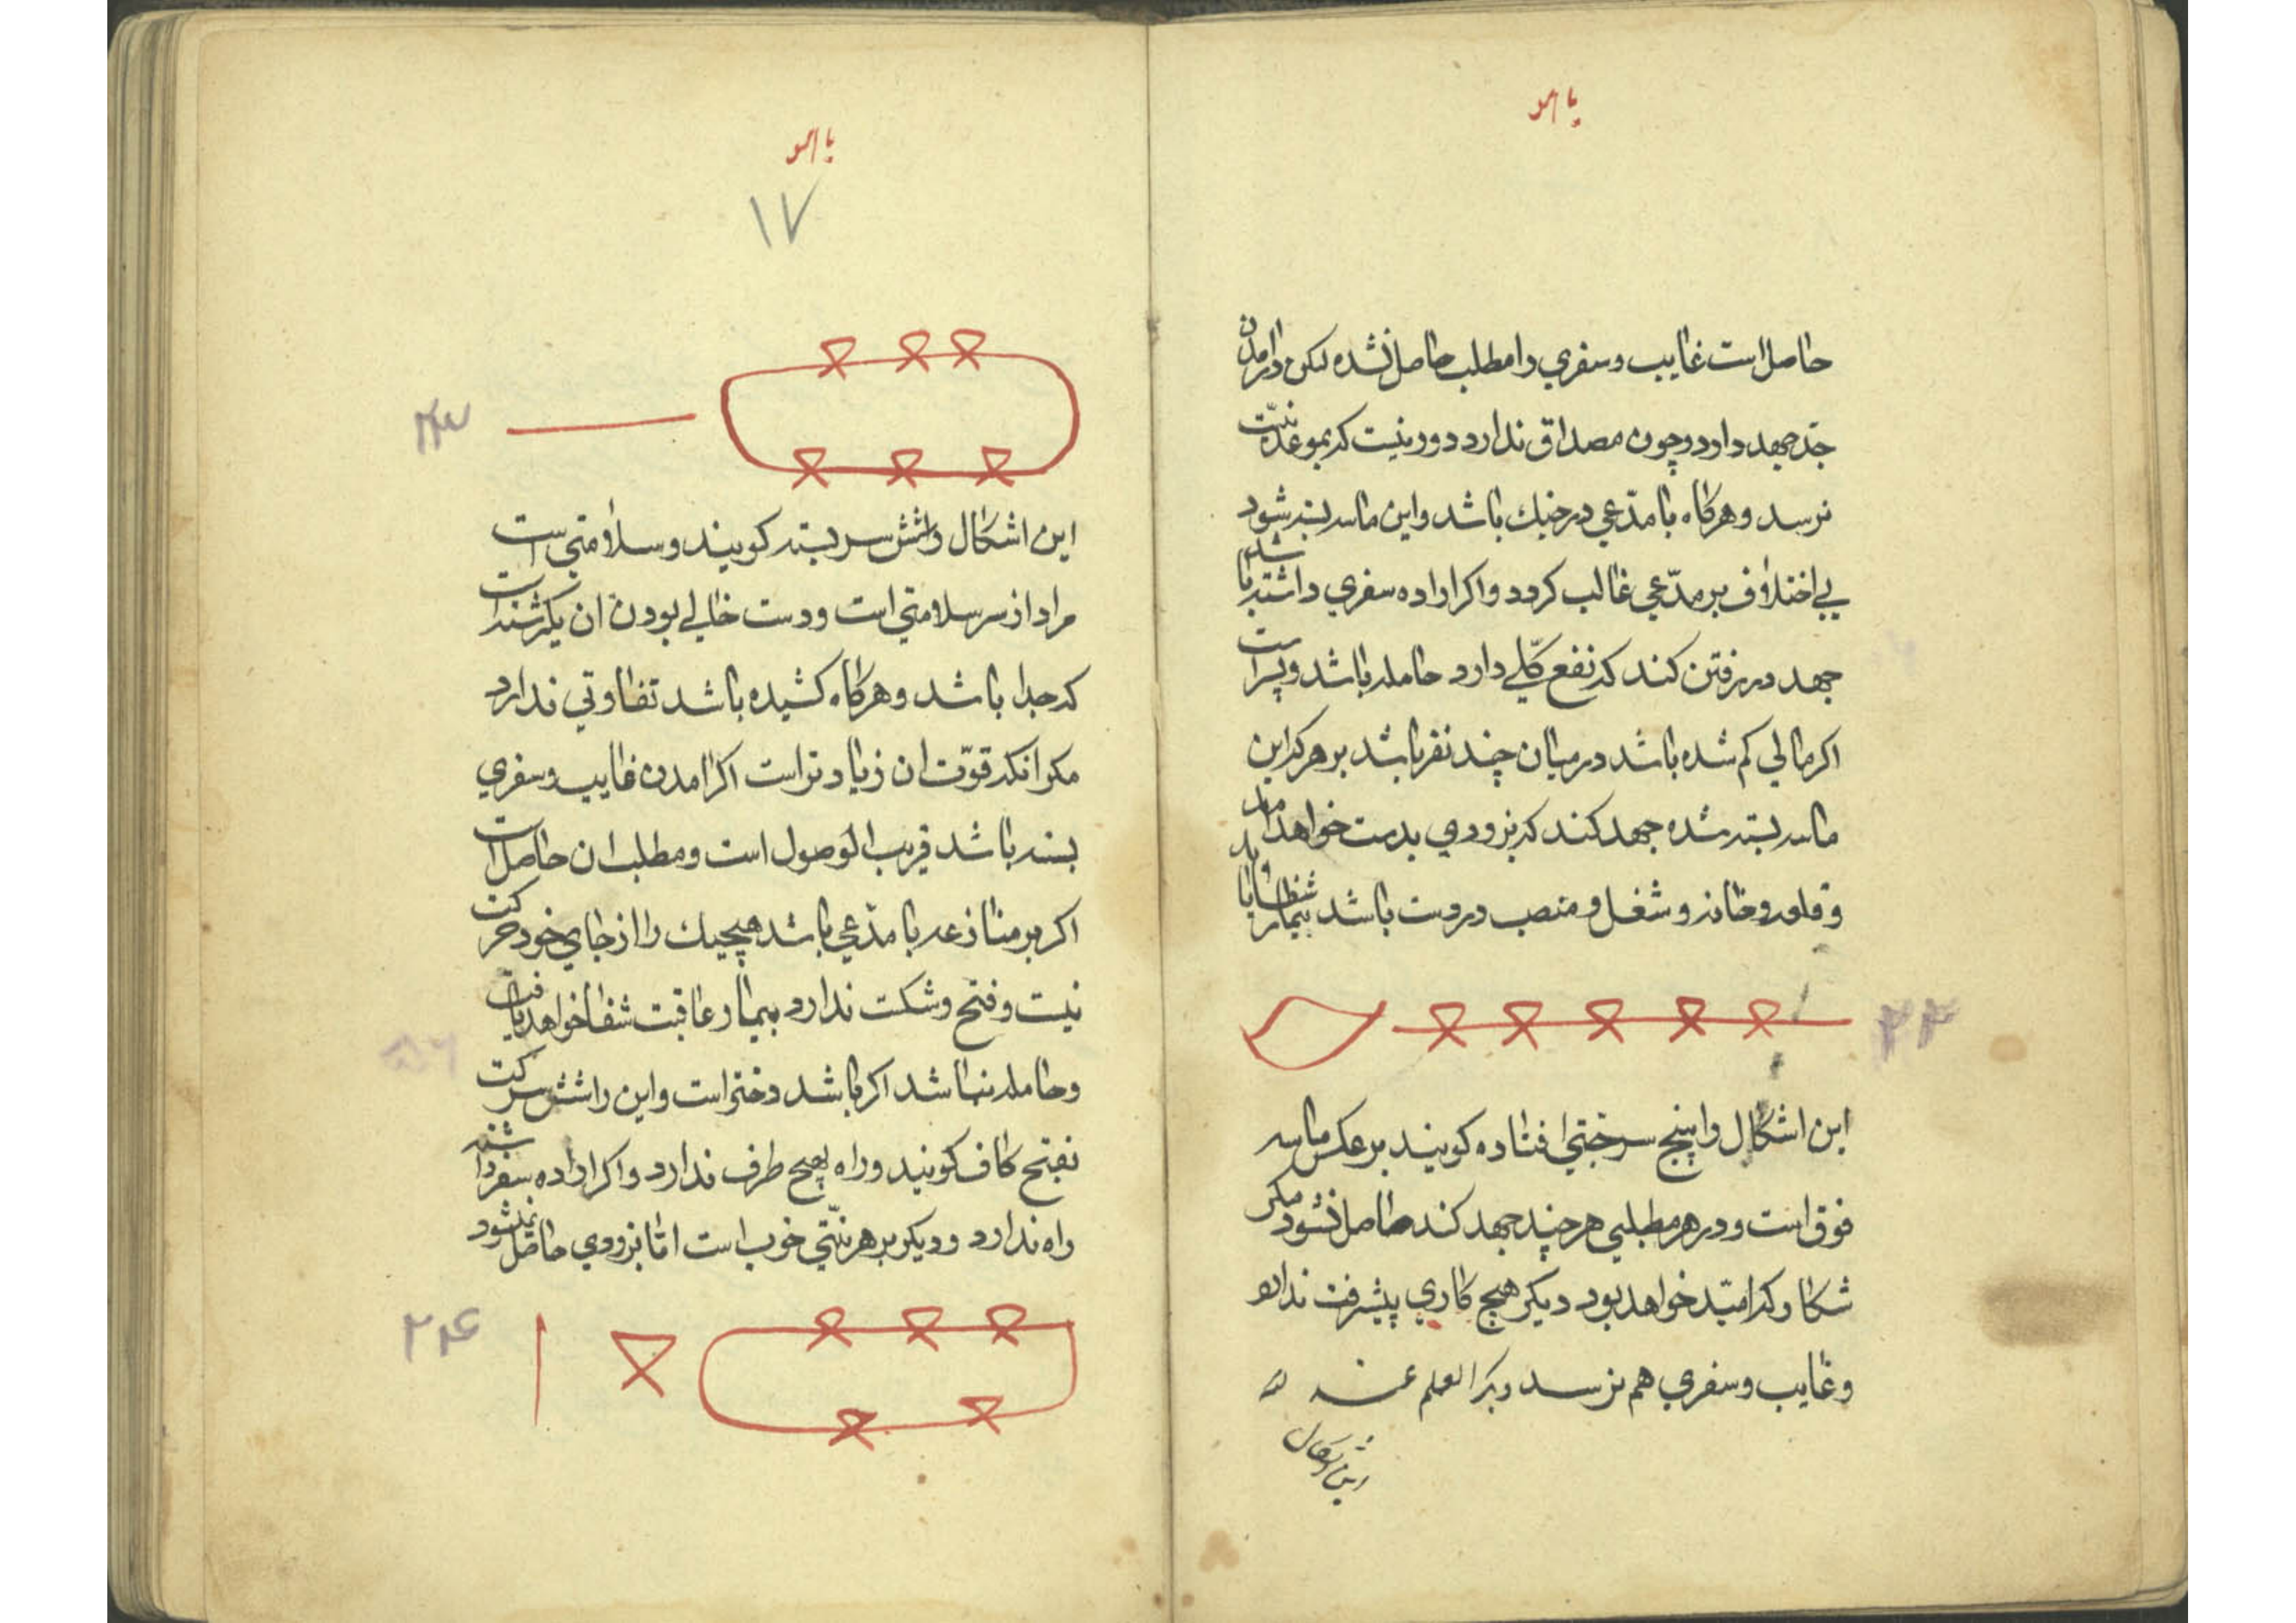 یا هو
حاصل است غایب و سفری را مطلب حاصل نشده لکن در امدن
جد جهد دارد و چون مصداق ندارد دور نیست که بموعد نیت
نرسد و هرکاه با مدّعی در جنك باشد و این ماسه بسته شود
بی اختلاف بر مدّعی غالب کردد و اکر اراده سفری داشته باشد
جهد در رفتن کند که نفع کلّی دارد حامله باشد و پسر است
اکر مالی کم شده باشد در میان چند نفر باشد بر هر که این
ماسه بسته شده جهد کند که بزودی بدست خواهد امد
و قلعه و خانه و شغل و منصب در دست باشد بیمار شفا یابد
۲۲
این اشکال را پنج سر ختی افتاده کویند بر عکس ماسه
فوق است و در هر مطلبی هر چند جهد کند حاصل نشود مکر
شکار که امیّد خواهد بود دیکر هیچ کاری پیشرفت ندارد
و غایب و سفری هم نرسد دیکر العلم عند
این اشکال
یا هو
۱۷
۲۳
این اشکال را شش سر بسته کویند و سلامتی است
مراد از سر سلامتی است و دست خالی بودن ان یکرشته است
که جدا باشد و هرکاه کشیده باشد تفاوتی ندارد
مکر انکه قوّت ان زیاد تر است اکر امدن غایب و سفری
بسته باشد قریب الوصول است و مطلب ان حاصل است
اکر بر منازعه با مدّعی باشد هیچیك را از جای خود حرکت
نیست و فتح و شکست ندارد بیمار عاقبت شفا خواهد یافت
و حامله نباشد اکر باشد دختر است و این را شش سر کت
بفتح کاف کویند و راه بهیچ طرف ندارد و اکر اراده سفر داشته
راه ندارد و دیکر بر هر نیّتی خوب است امّا بزودی حاصل نمیشود
۲۴